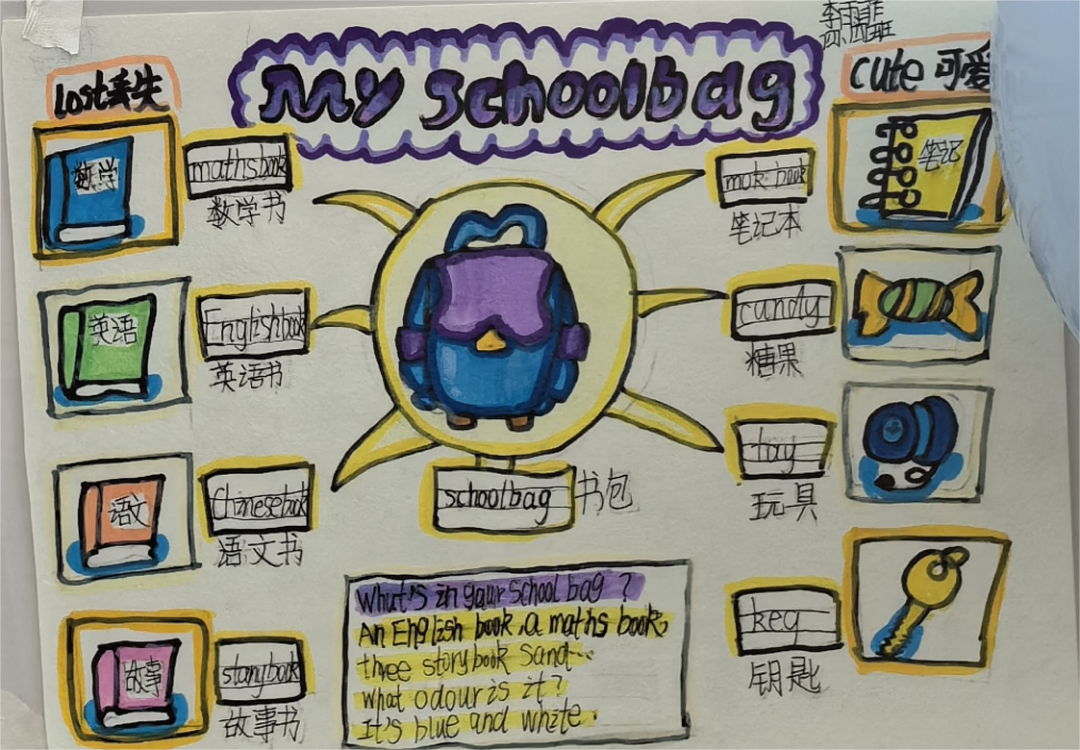 My schoolbag
李雨菲
四班
lost丢失
cute 可爱
数学
maths book
数学书
英语
English book
英语书
语文
Chinese book
语文书
故事
story book
故事书
schoolbag 书包
笔记
笔记本
candy
糖果
toy
玩具
key
钥匙
What's in your school bag ?
An English book, a maths book,
three storybook sand...
what odour is it?
It's blue and white.